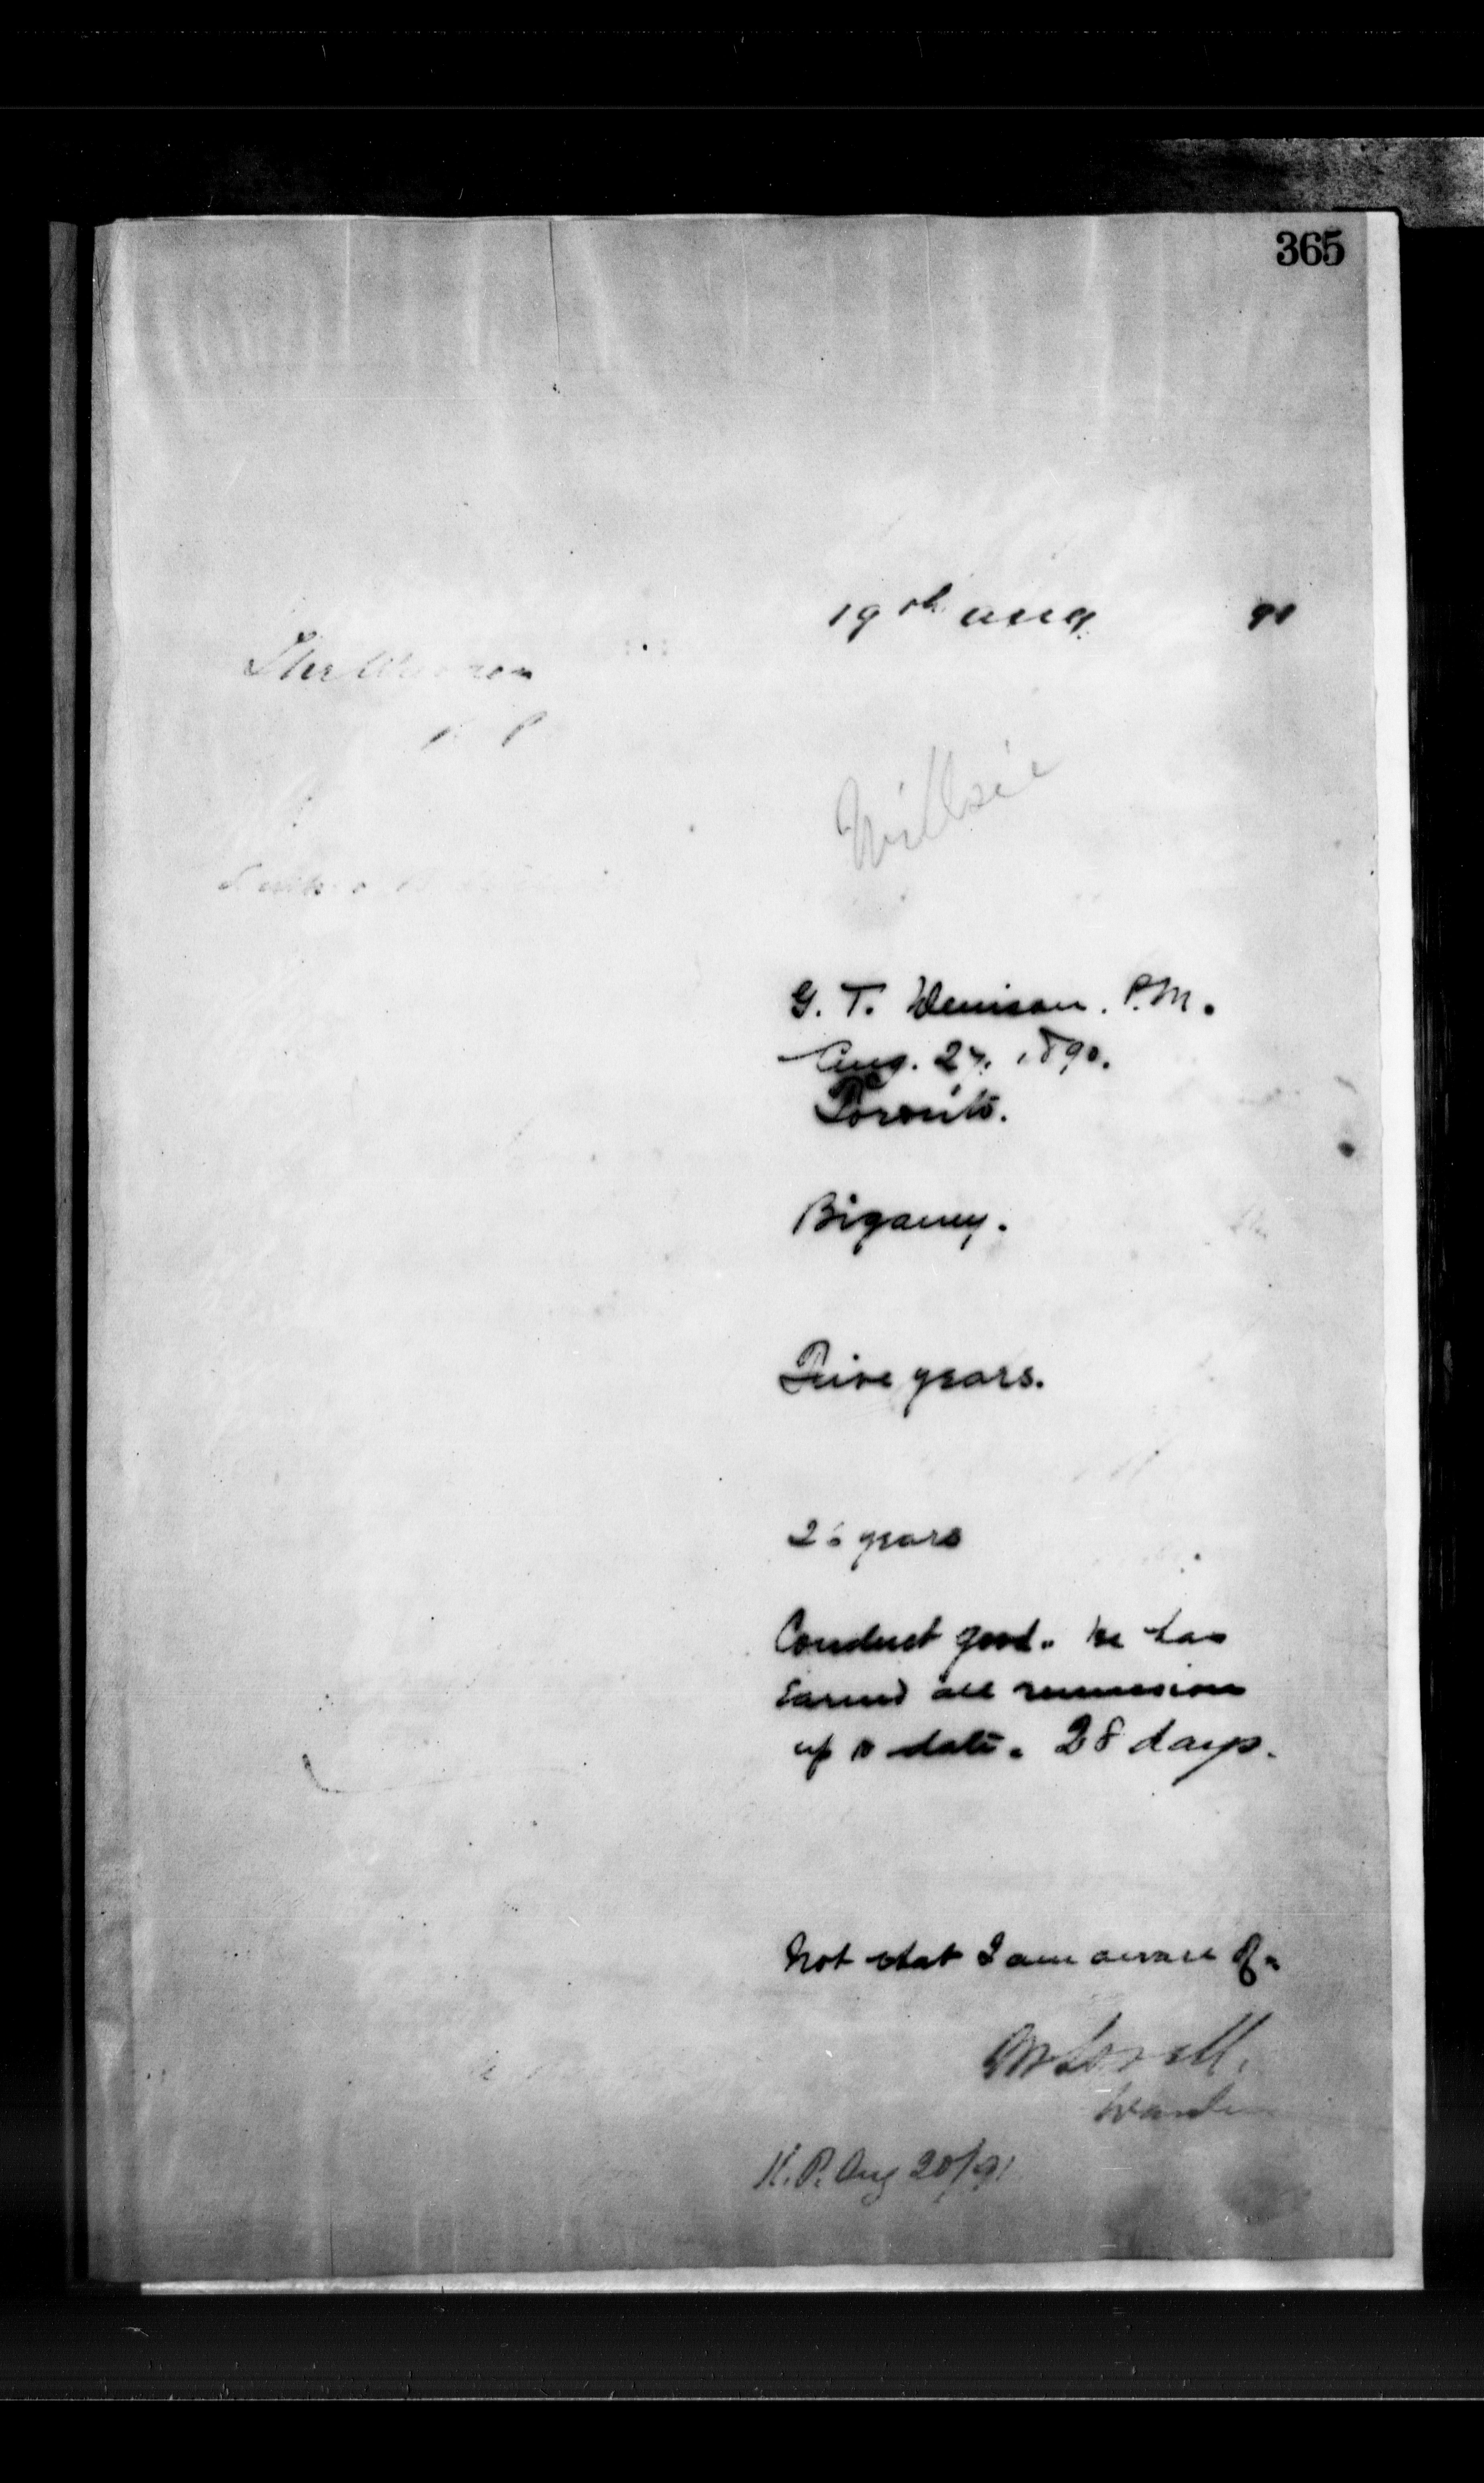 365
19th Aug 91
The Warden
K. P.
Willsie
G. T. Denison. P.M.
Aug. 27. 1890.
Toronto.
Bigamy.
Five years.
26 years
Conduct good. He has
earned all remission
up to date. 28 days.
Not that I am aware of.
M Lavell.
Warden
K. P. Aug 20/91